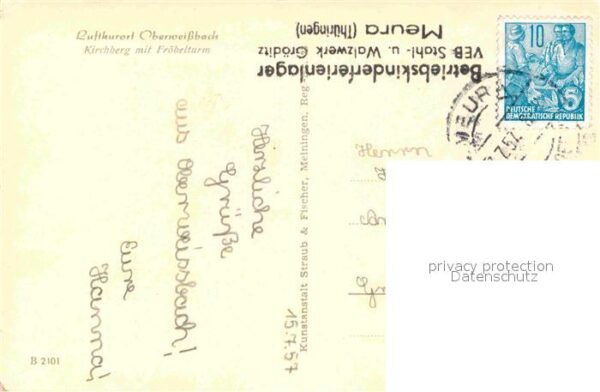 Luftkurort Oberweißbach
Kirchberg mit Fröbelturm
Betriebskinderferienlager
VEB Stahl- u. Walzwerk Gröditz
Meura (Thüringen)
10
5
DEUTSCHE
DEMOKRATISCHE REPUBLIK
MEURA
7.57
15.7.57
Herzliche
Grüße
aus Oberweissbach!
Eure
Hanna!
Kunstanstalt Straub & Fischer, Meiningen, Reg
Herrn
privacy protection
Datenschutz
B 2101